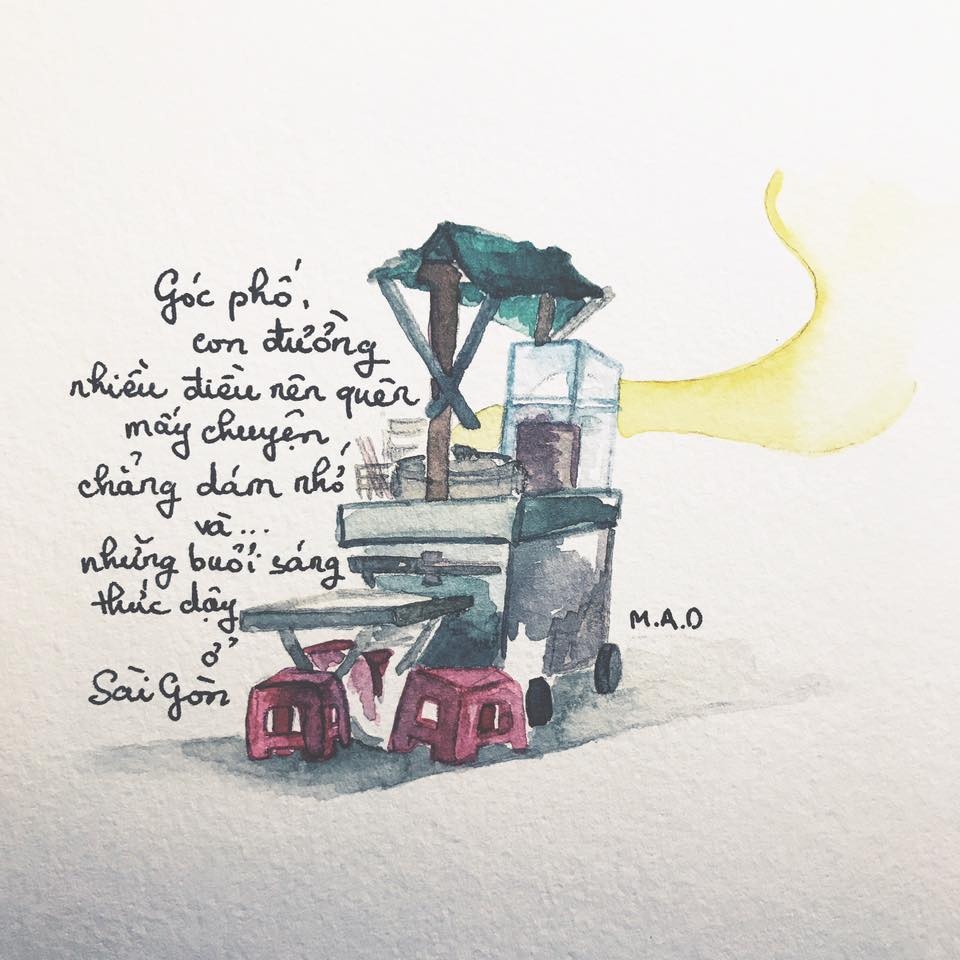 Góc phố,
con đường
nhiều điều nên quên
mấy chuyện
chẳng dám nhớ
và...
những buổi sáng
thức dậy
ở
Sài Gòn
M.A.D